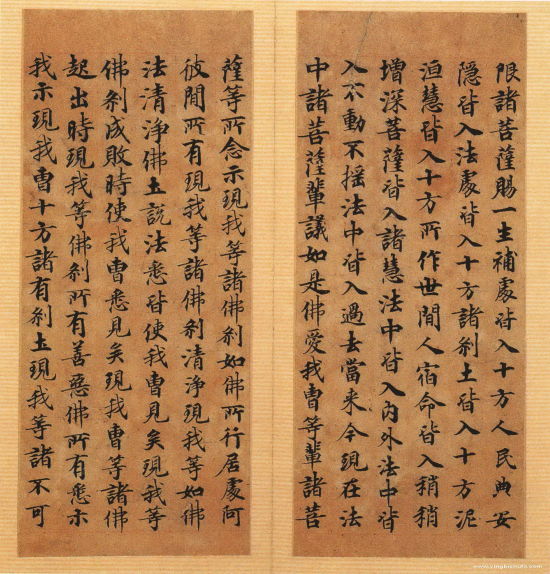 限諸菩薩賜一生補處皆入十方人民典安
隱皆入法處皆入十方諸刹土皆入十方泥
洹慧皆入十方所作世間人宿命皆入稍稍
增深菩薩皆入諸慧法中皆入內外法中皆
入不動不摇法中皆入過去當来今現在法
中諸菩薩輩議如是佛愛我曹等輩諸菩
薩等所念示現我等諸佛刹如佛所行居處阿
彼間所有現我等諸佛刹清淨現我等如佛
法清淨佛土說法悉皆使我曹見矣現我等
佛刹成敗時使我曹悉見矣現我曹等諸佛
起出時現我等佛刹所有善惡佛所有悉示
我示現我曹十方諸有刹土現我等諸不可
www.yingbishufa.com